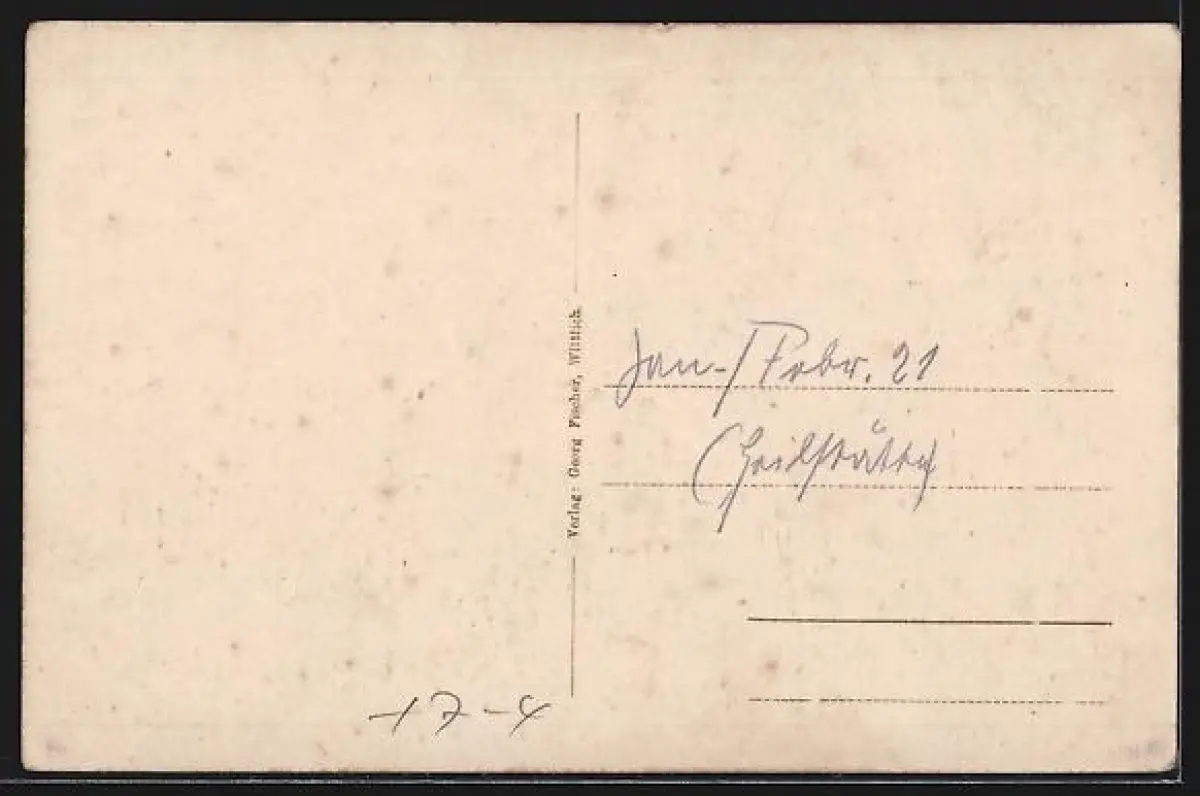 Verlag: Georg Fischer, Wittlich.
Jan-/Febr. 21
(Heilstätte)
-17-4